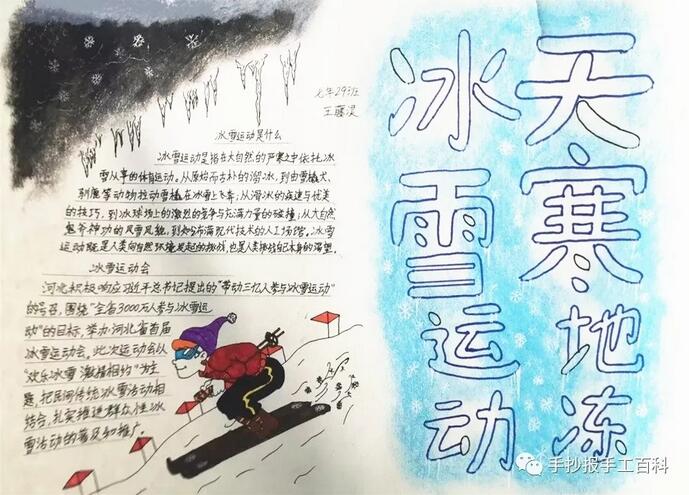 七年29班
冰雪运动是什么
冰雪运动是指在大自然的严寒之中依托冰
雪从事的体育运动。从原始而古朴的溜冰，到由雪橇犬、
驯鹿等动物拉动雪橇在冰雪上飞奔；从滑冰的疾速与优美
的技巧，到冰球场上的激烈的竞争与充满力量的碰撞；从大自然
鬼斧神功的风雪风貌，到如今布满现代技术的人工场馆。冰雪
运动既是人类向自然环境发起的挑战，也是人类挑战自己本身的渴望。
冰雪运动会
河北积极响应习近平总书记提出的“带动三亿人参与冰雪运动”
的号召，围绕“全省3000万人参与冰雪运
动”的目标，举办河北省首届
冰雪运动会，此次运动会以
“欢乐冰雪 激情相约”为主
题，把民间传统冰雪活动相
结合，扎实推进群众性冰
雪活动的普及和推广。
天寒地冻
冰雪运动
手抄报手工百科